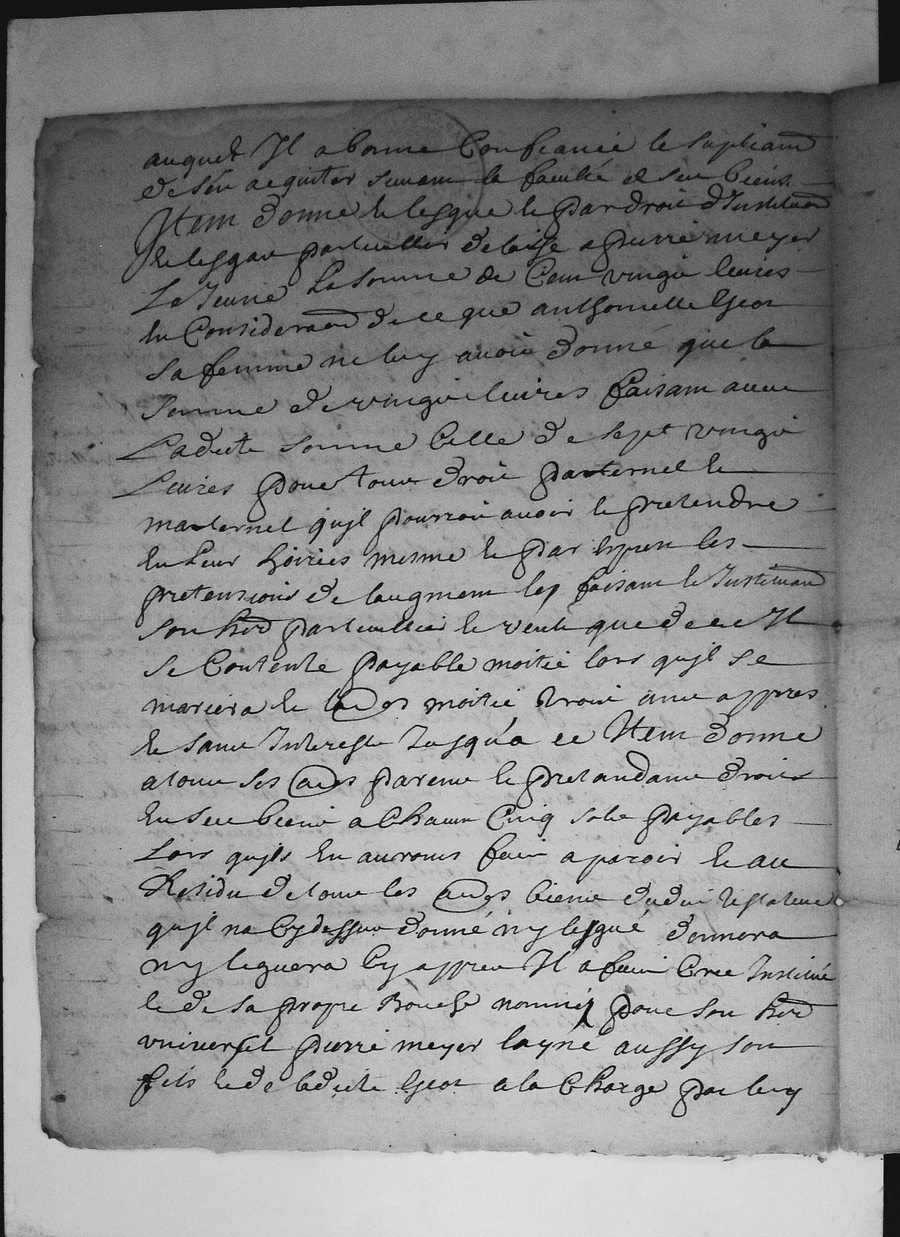 auquel Il a bonne Confiance le supliant
de sen aquiter suivant la faculté de ses biens
Item donne & legue & par droit d'Institution
& legat particullier delaisse a pierre meyer
Le Jeune La somme de Cent vingt livres
En Consideration de ce que anthoinette Geor
sa femme ne luy avoit donné que la
somme de vingt livres faisant avec
Ladicte somme Celle de sept vingt
Livres pour tout droit paternel &
maternel quil pourroit avoir & pretendre
En leur hoiries mesme & par expres les
pretensions de laugment les faisant & Instituant
son herd particullier & veut que de ce Il
se Contente payable moitié lors quil se
mariera & lautre moitié trois ans appres
& sans Interestz Jusqu'a ce Item donne
a tous ses autres parens & pretandans droit
En ses biens a Chacun Cinq solz payables
Lors quils En auront fait aparoir & au
Residu de tous les autres biens dudit testateur
quil na Cydessus donné ny legué donnera
ny leguera Cy appres Il a fait Creé Institué
& de sa propre Bouche nommé pour son herd
vniversel pierre meyer layné aussy son
fils & de ladicte Geor a la Charge par luy